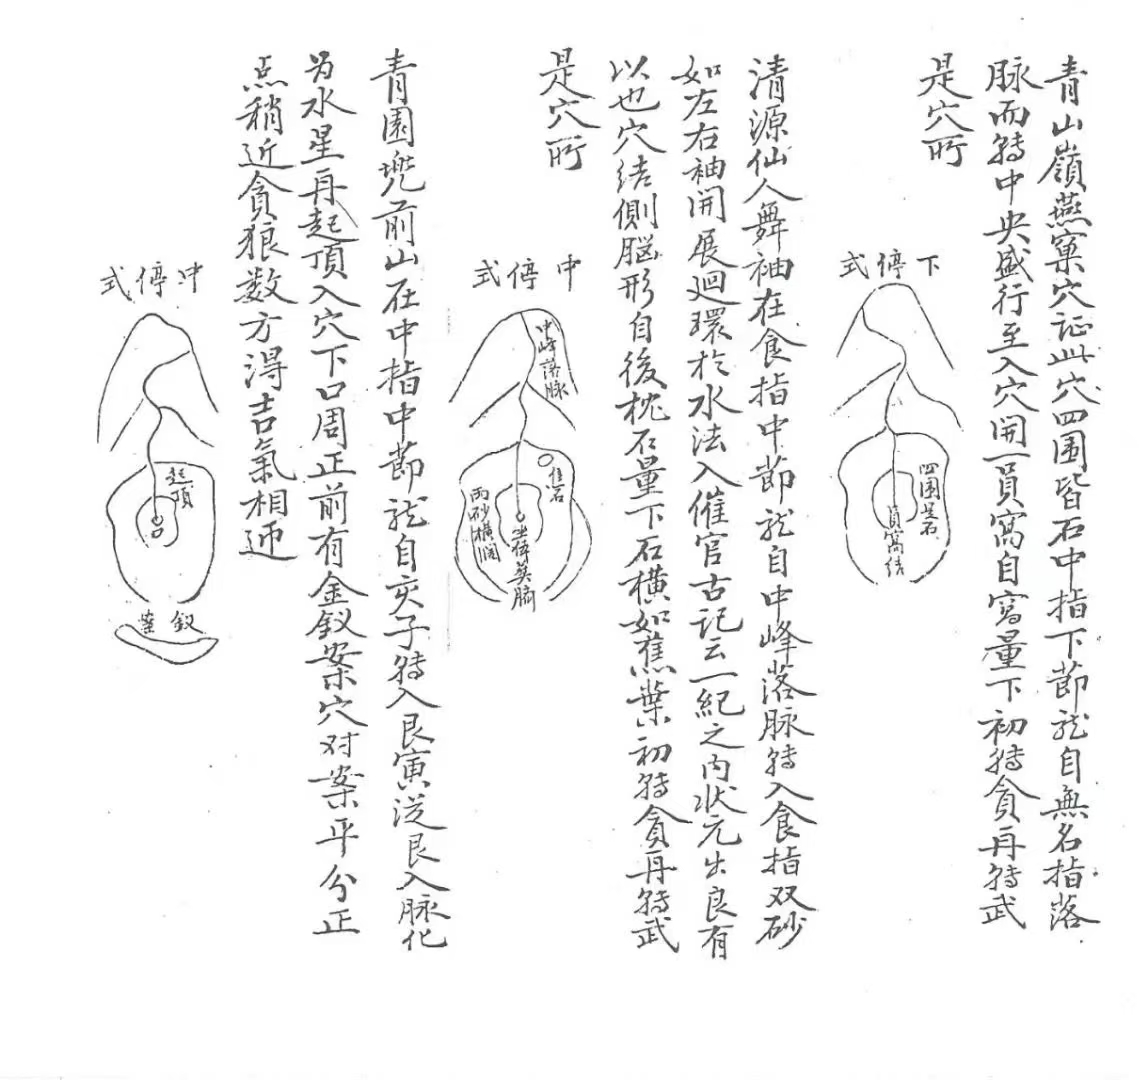 青山嶺燕窠穴証此穴四囲皆石中指下節龙自無名指落
脉而转中央盛行至入穴開一員窩自窩量下初转貪再转武
是穴所
下停式
四圍是石
員窩结
清源仙人舞袖在食指中節龙自中峰落脉转入食指双砂
如左右袖開展迴環於水法入催官古記云一紀之内状元出良有
以也穴结側脳形自後枕石量下石横如蕉葉初转貪再转武
是穴所
中停式
中峰落脉
隹石
両砂横闊
青園兠前山在中指中節龙自亥子转入艮寅迳艮入脉化
为水星再起頂入穴下口周正前有金釵案穴对案平分正
点稍近貪狼数方得吉氣相逓
中停式
起頂
釵案